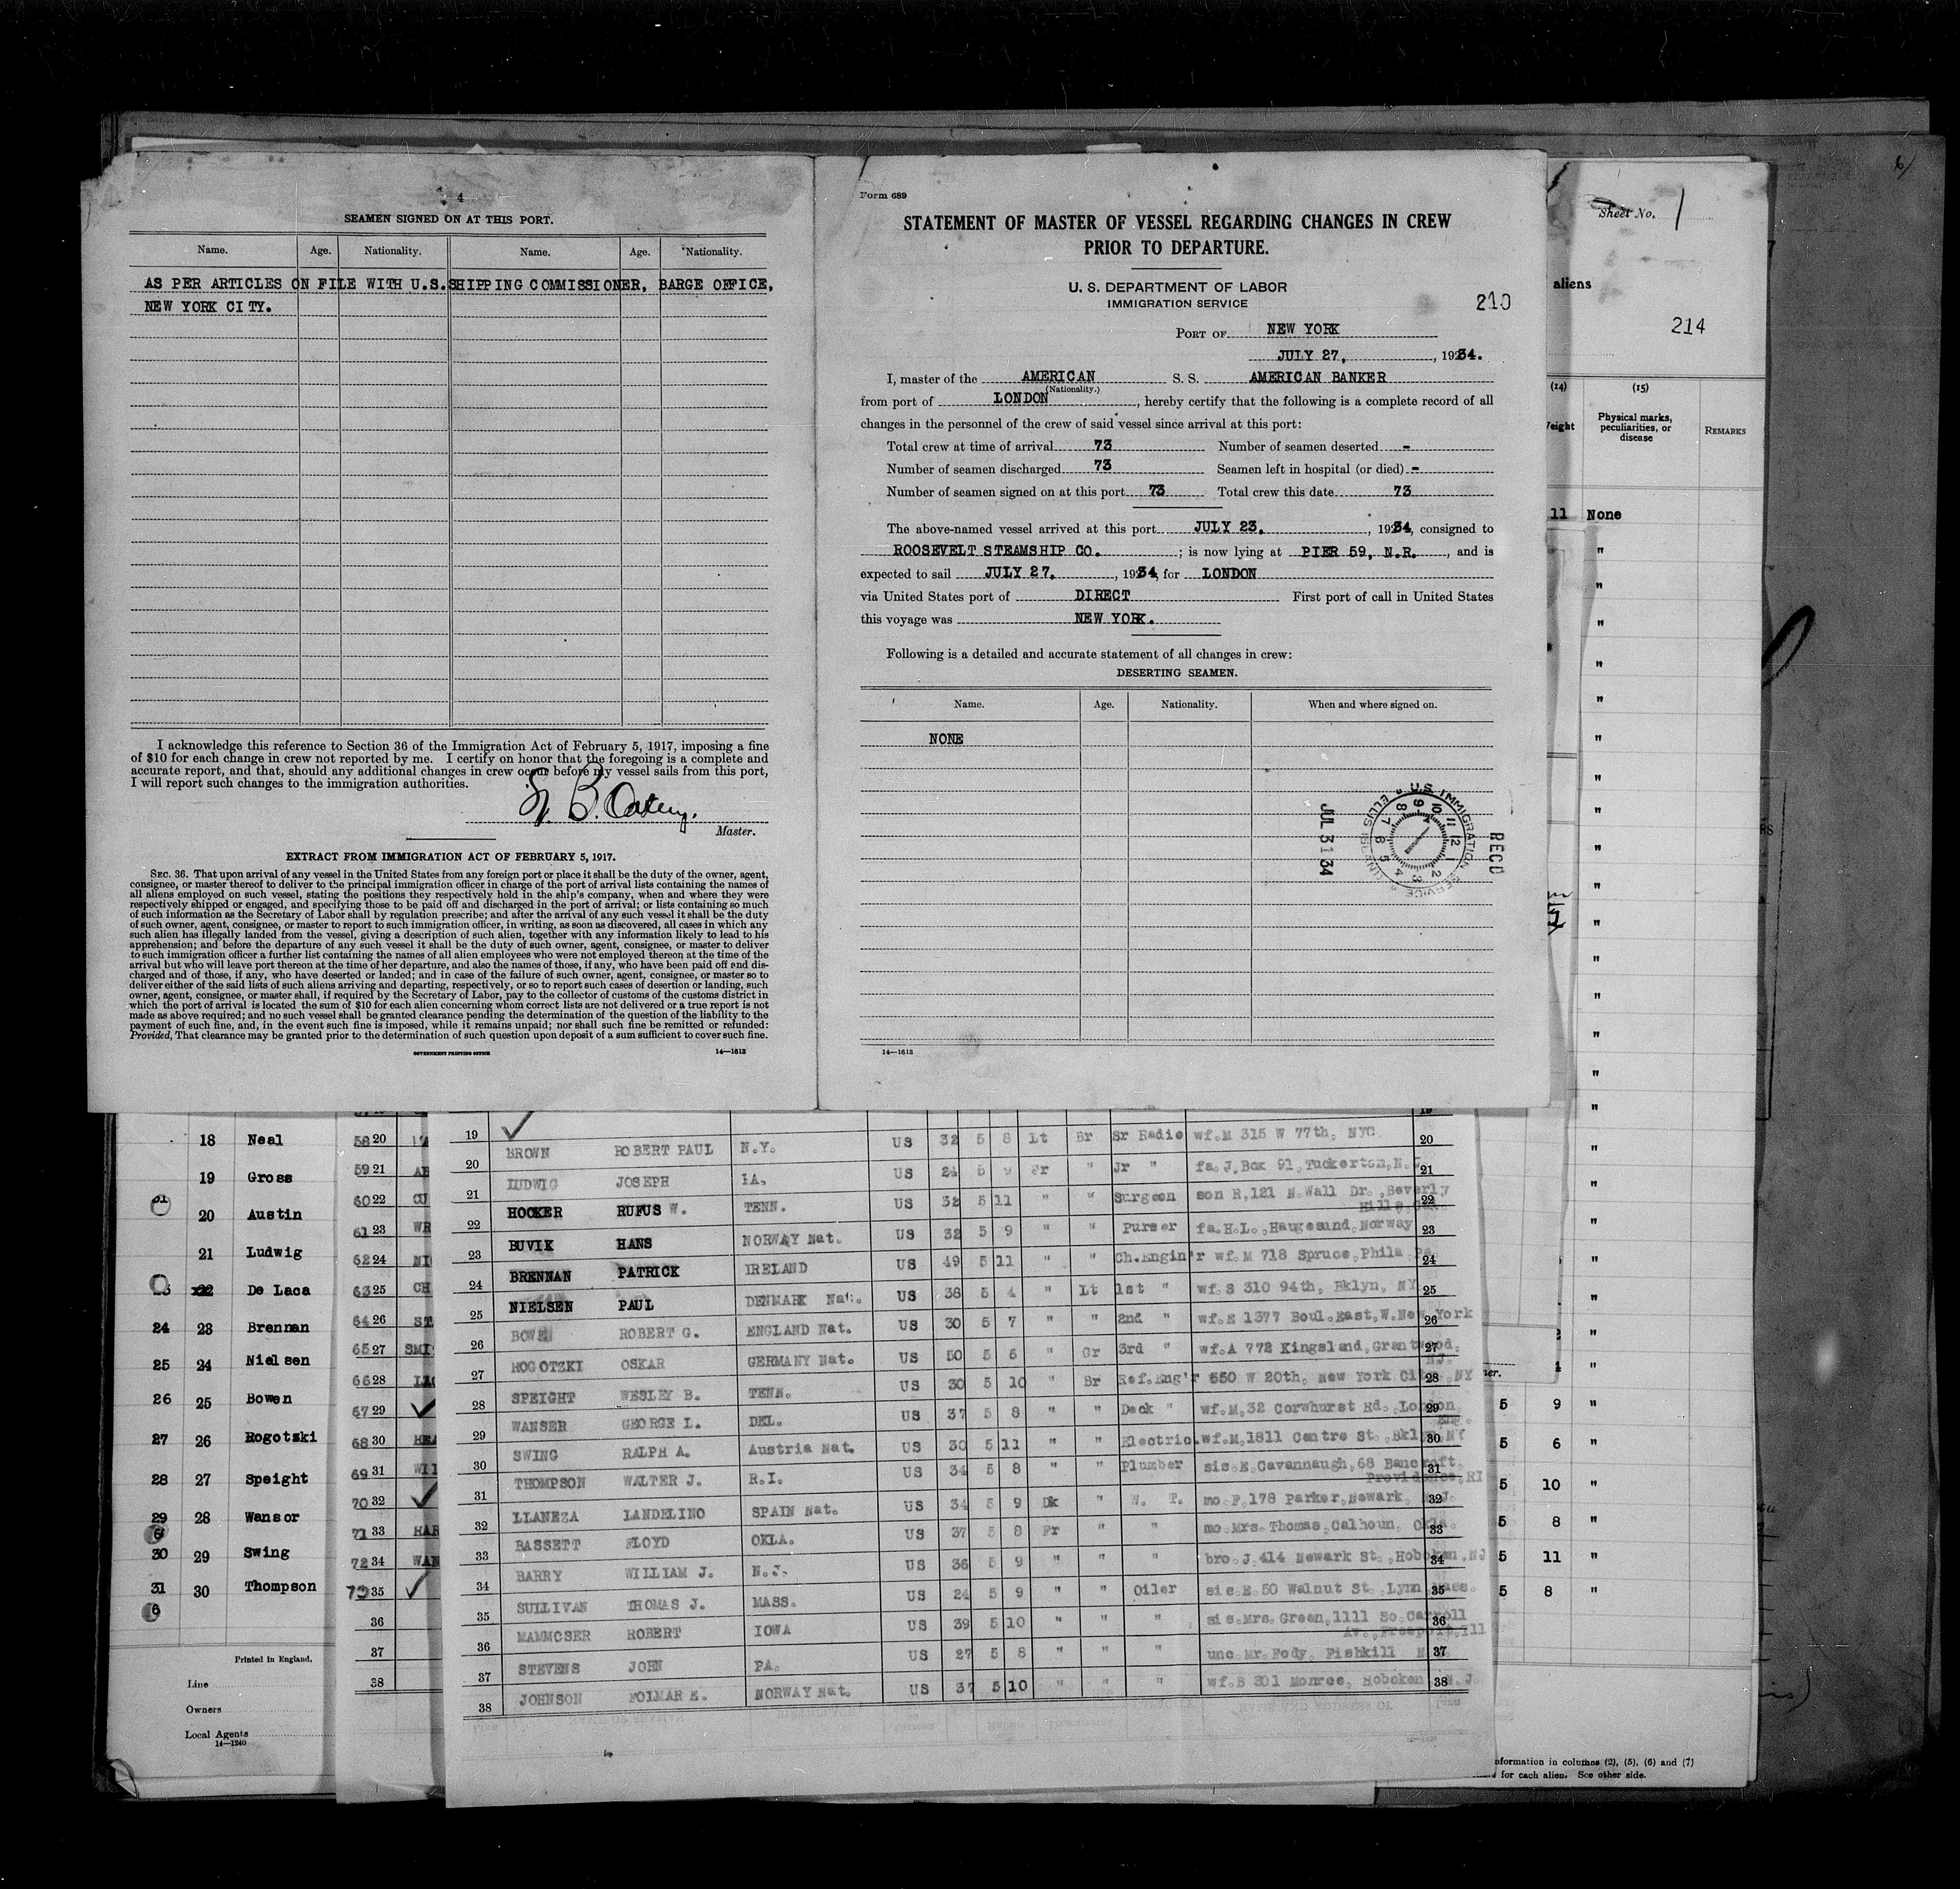 4
SEAMEN SIGNED ON AT THIS PORT.
Name. Age. Nationality. Name. Age. Nationality.
AS PER ARTICLES ON FILE WITH U.S. SHIPPING COMMISSIONER, BARGE OFFICE,
NEW YORK CITY.
I acknowledge this reference to Section 36 of the Immigration Act of February 5, 1917, imposing a fine
of $10 for each change in crew not reported by me. I certify on honor that the foregoing is a complete and
accurate report, and that, should any additional changes in crew occur before my vessel sails from this port,
I will report such changes to the immigration authorities.
Master.
EXTRACT FROM IMMIGRATION ACT OF FEBRUARY 5, 1917.
SEC. 36. That upon arrival of any vessel in the United States from any foreign port or place it shall be the duty of the owner, agent,
consignee, or master thereof to deliver to the principal immigration officer in charge of the port of arrival lists containing the names of
all aliens employed on such vessel, stating the positions they respectively hold in the ship's company, when and where they were
respectively shipped or engaged, and specifying those to be paid off and discharged in the port of arrival; or lists containing so much
of such information as the Secretary of Labor shall by regulation prescribe; and after the arrival of any such vessel it shall be the duty
of such owner, agent, consignee, or master to report to such immigration officer, in writing, as soon as discovered, all cases in which any
such alien has illegally landed from the vessel, giving a description of such alien, together with any information likely to lead to his
apprehension; and before the departure of any such vessel it shall be the duty of such owner, agent, consignee, or master to deliver
to such immigration officer a further list containing the names of all alien employees who were not employed thereon at the time of the
arrival but who will leave port thereon at the time of her departure, and also the names of those, if any, who have been paid off and dis-
charged and of those, if any, who have deserted or landed; and in case of the failure of such owner, agent, consignee, or master so to
deliver either of the said lists of such aliens arriving and departing, respectively, or so to report such cases of desertion or landing, such
owner, agent, consignee, or master shall, if required by the Secretary of Labor, pay to the collector of customs of the customs district in
which the port of arrival is located the sum of $10 for each alien concerning whom correct lists are not delivered or a true report is not
made as above required; and no such vessel shall be granted clearance pending the determination of the question of the liability to the
payment of such fine, and, in the event such fine is imposed, while it remains unpaid; nor shall such fine be remitted or refunded:
Provided, That clearance may be granted prior to the determination of such question upon deposit of a sum sufficient to cover such fine.
GOVERNMENT PRINTING OFFICE 14—1613
Form 689
STATEMENT OF MASTER OF VESSEL REGARDING CHANGES IN CREW
PRIOR TO DEPARTURE.
U. S. DEPARTMENT OF LABOR
IMMIGRATION SERVICE
210
PORT OF NEW YORK
JULY 27, 1934.
I, master of the AMERICAN S. S. AMERICAN BANKER
(Nationality.)
from port of LONDON, hereby certify that the following is a complete record of all
changes in the personnel of the crew of said vessel since arrival at this port:
Total crew at time of arrival 73 Number of seamen deserted -
Number of seamen discharged 73 Seamen left in hospital (or died) -
Number of seamen signed on at this port 73 Total crew this date 73
The above-named vessel arrived at this port JULY 23, 1934, consigned to
ROOSEVELT STEAMSHIP CO. ; is now lying at PIER 59, N.R., and is
expected to sail JULY 27, 1934, for LONDON
via United States port of DIRECT First port of call in United States
this voyage was NEW YORK.
Following is a detailed and accurate statement of all changes in crew:
DESERTING SEAMEN.
Name. Age. Nationality. When and where signed on.
NONE
REC'D
U.S. IMMIGRATION SERVICE ELLIS ISLAND
JUL 31 34
14—1613
Sheet No. 1
aliens
214
(14) (15)
Physical marks, peculiarities, or disease
REMARKS
11 None
18 Neal
19 Gross
20 Austin
21 Ludwig
22 De Laca
24 23 Brennan
25 24 Nielsen
26 25 Bowen
27 26 Rogotski
28 27 Speight
29 28 Wansor
30 29 Swing
31 30 Thompson
Printed in England.
Line
Owners
Local Agents
14—1240
58 20
59 21
60 22
61 23
62 24
63 25
64 26
65 27
66 28
67 29
68 30
69 31
70 32
71 33
72 34
73 35
36
37
38
19
20 BROWN ROBERT PAUL N.Y. US 32 5 8 Lt Br Sr Radio wf.M 315 W 77th, NYC 20
21 LUDWIG JOSEPH IA. US 24 5 9 Fr " Jr " fa.J.Box 91,Tuckerton,N. 21
22 HOOKER RUFUS W. TENN. US 32 5 11 " " Surgeon son R,121 N.Wall Dr.,Beverly 22
23 BUVIK HANS NORWAY Nat. US 32 5 9 " " Purser fa.H.L.,Haugesund,Norway 23
24 BRENNAN PATRICK IRELAND US 49 5 11 " " Ch.Engin'r wf.M 718 Spruce,Phila 24
25 NIELSEN PAUL DENMARK Nat. US 38 5 4 " Lt 1st " wf.S 310 94th, Bklyn, NY 25
26 BOWEN ROBERT G. ENGLAND Nat. US 30 5 7 " " 2nd " wf.E 1377 Boul.East,W.New York 26
27 ROGOTZKI OSKAR GERMANY Nat. US 50 5 6 " Gr 3rd " wf.A 772 Kingsland,Grantwood, NJ. 27
28 SPEIGHT WESLEY B. TENN. US 30 5 10 " Br Ref.Eng'r 550 W 20th, New York City, NY 28
29 WANSER GEORGE L. DEL. US 37 5 8 " " Deck " wf.M,32 Corwhurst Rd. London, Eng. 29
30 SWING RALPH A. Austria Nat. US 30 5 11 " " Electric. wf.M,1811 Centre St.,Bklyn,NY 30
31 THOMPSON WALTER J. R.I. US 34 5 8 " " Plumber sis.E.Cavannaugh,68 Bancroft, Providence,RI 31
32 LLANEZA LANDELINO SPAIN Nat. US 34 5 9 Dk " W. T. mo.F,178 Parker,Newark, N.J. 32
33 BASSETT FLOYD OKLA. US 37 5 8 Fr " " mo.Mrs.Thomas,Calhoun, Okla. 33
34 BARRY WILLIAM J. N.J. US 36 5 9 " " " bro.J.414 Newark St.,Hoboken,NJ 34
35 SULLIVAN THOMAS J. MASS. US 24 5 9 " " Oiler sis.E.50 Walnut St.,Lynn Mass. 35
36 MAMMOSER ROBERT IOWA US 39 5 10 " " " sis.Mrs.Green,1111 So.Carroll Av.,Freeport,Ill 36
37 STEVENS JOHN PA. US 27 5 8 " " " unc.Mr.Fody, Fishkill 37
38 JOHNSON FOLMAR E. NORWAY Nat. US 37 5 10 " " " wf.B 301 Monroe, Hoboken N.J. 38
5 9 "
5 6 "
5 10 "
5 8 "
5 11 "
5 8 "
information in columns (2), (5), (6) and (7)
for each alien. See other side.